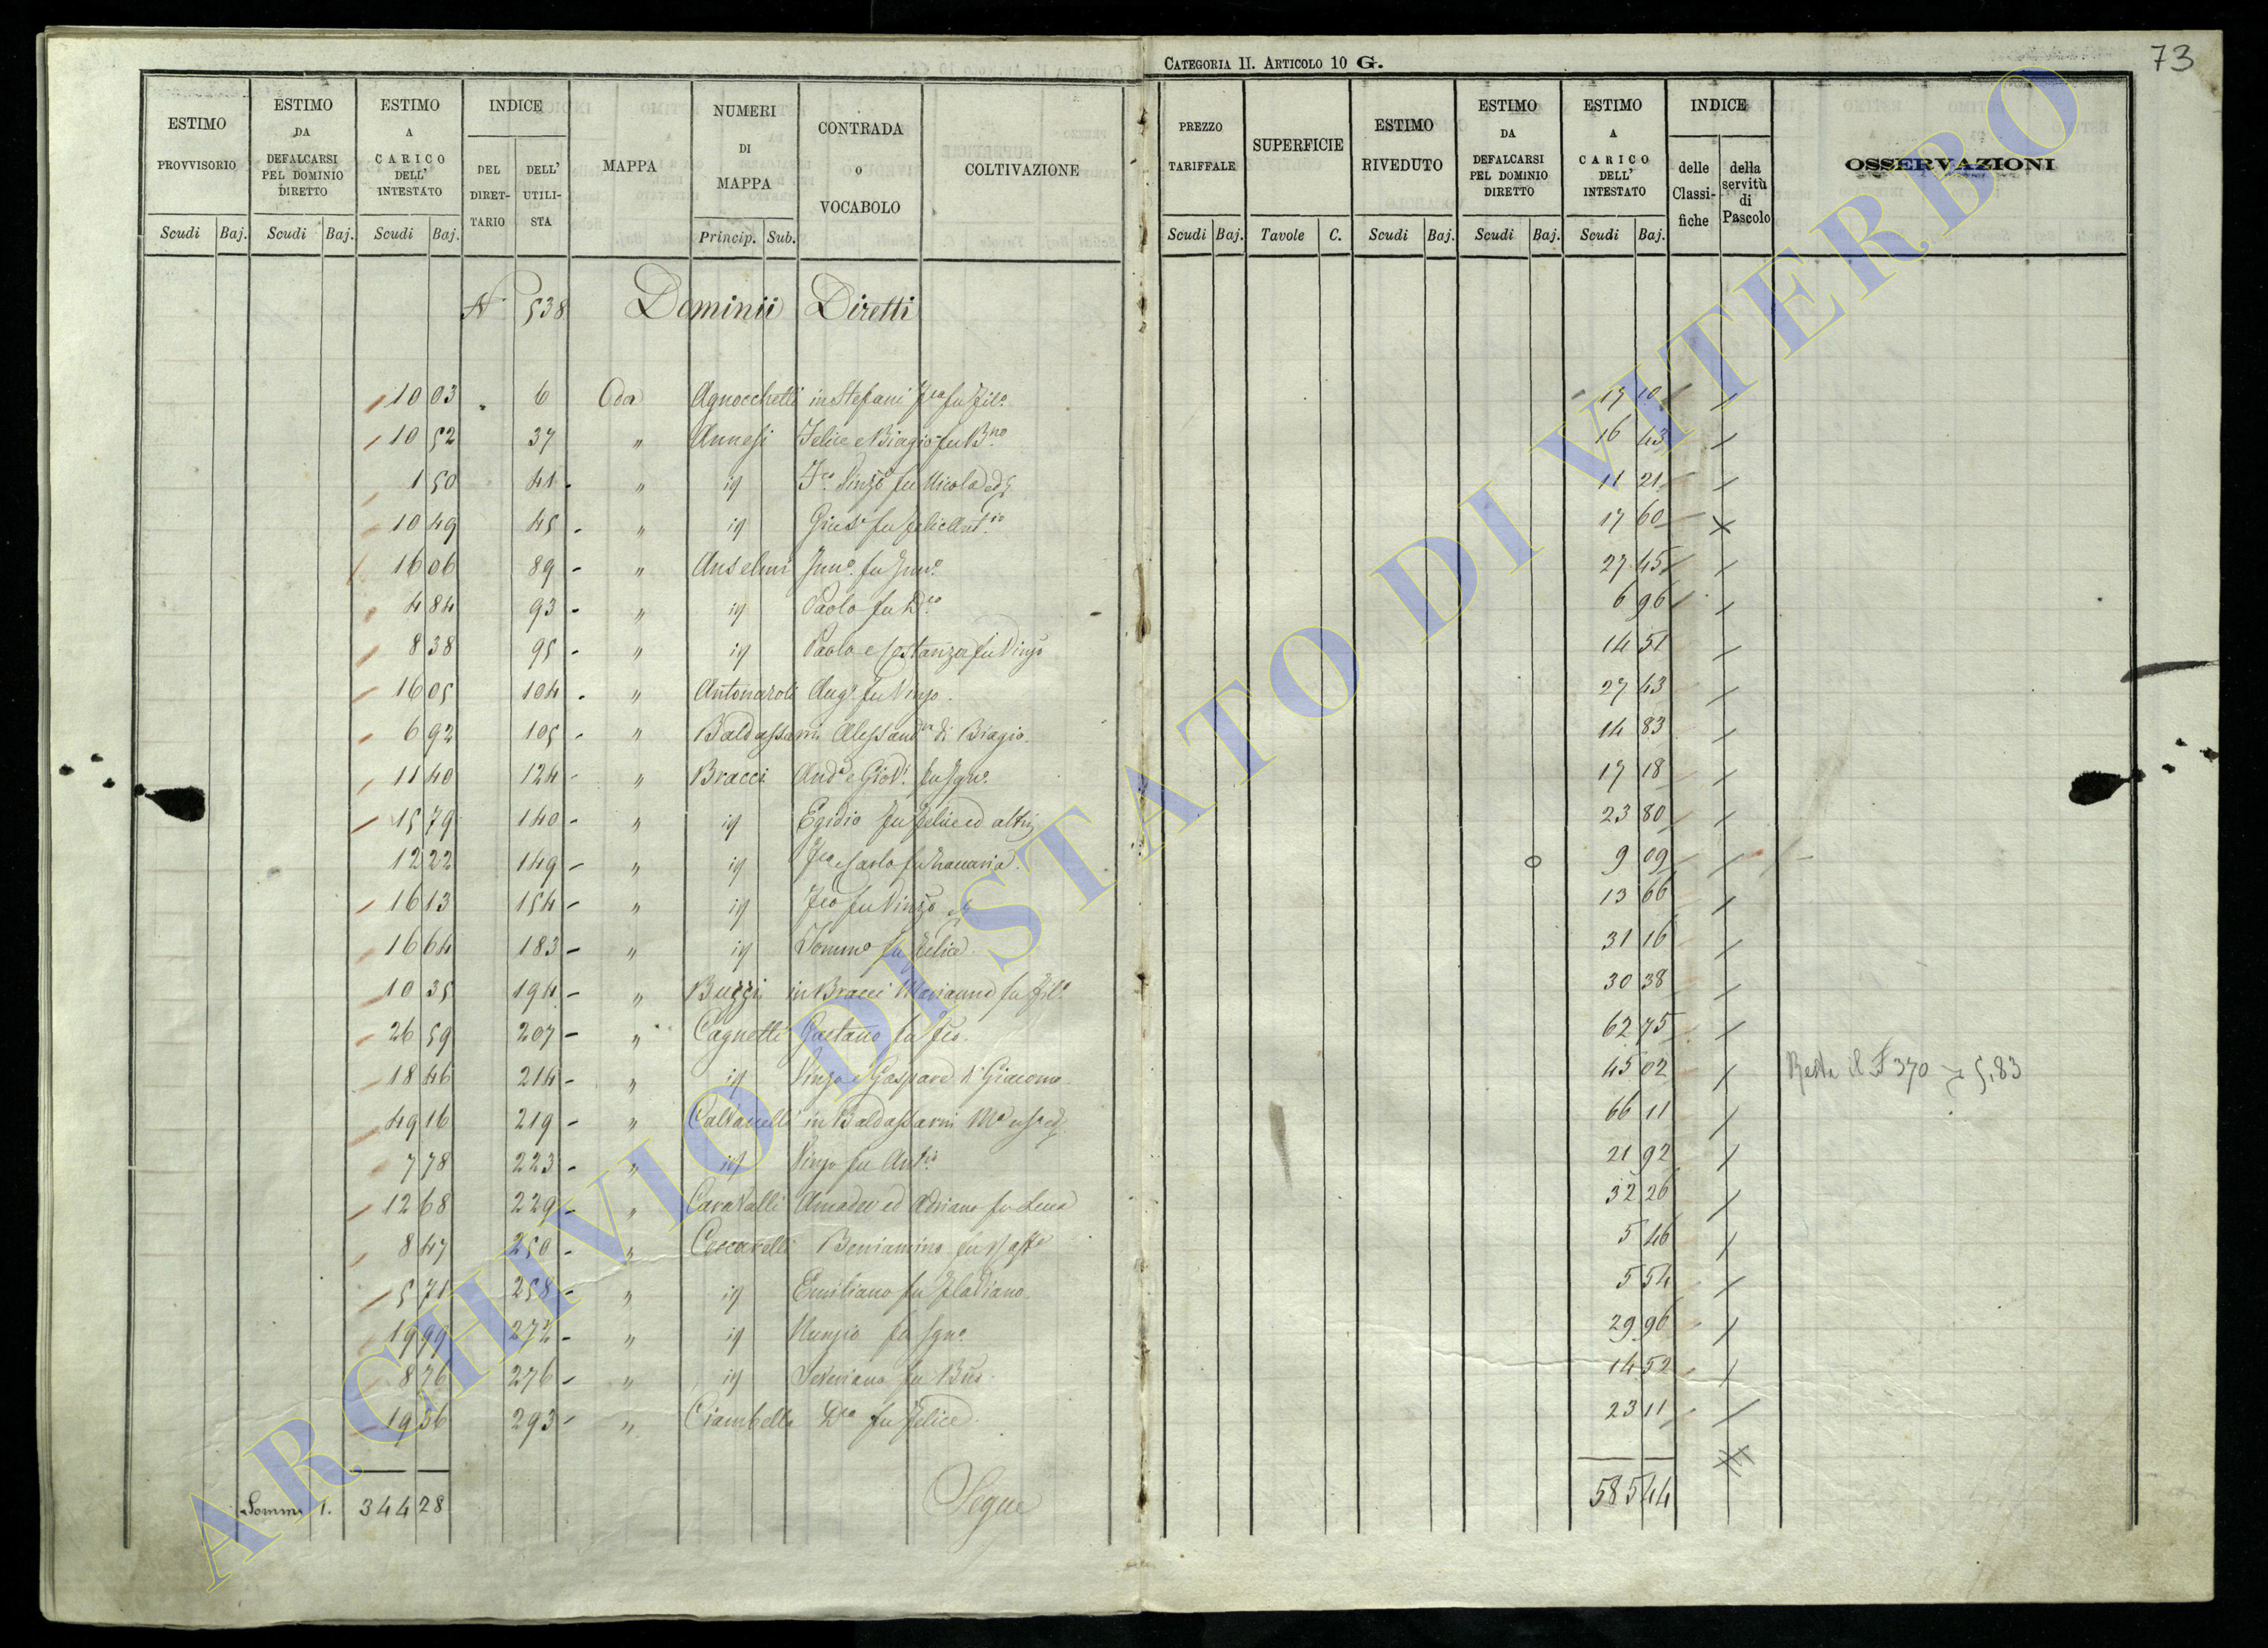 CATEGORIA II. ARTICOLO 10 G.
73
ESTIMO PROVVISORIO
ESTIMO DA DEFALCARSI PEL DOMINIO DIRETTO
ESTIMO A CARICO DELL' INTESTATO
INDICE
DEL DIRETTARIO
DELL' UTILISTA
MAPPA
NUMERI DI MAPPA
CONTRADA o VOCABOLO
COLTIVAZIONE
PREZZO TARIFFALE
SUPERFICIE
ESTIMO RIVEDUTO
ESTIMO DA DEFALCARSI PEL DOMINIO DIRETTO
ESTIMO A CARICO DELL' INTESTATO
INDICE
delle Classifiche
della servitù di Pascolo
OSSERVAZIONI
Scudi Baj. Scudi Baj. Scudi Baj. Princip. Sub. Scudi Baj. Tavole C. Scudi Baj. Scudi Baj. Scudi Baj.
N. 538 Dominii Diretti
10 03 6 Agnocchetti in Stefani fu Fil.o 17 10
10 52 37 " Annesi Felice e Biagio fu B.no 16 43
1 50 41 " id Vinzo fu Nicola 11 21
10 49 45 " id Gius.e fu Felice Ant.io 17 60
16 06 89 " Anselmi fu 27 45
4 84 93 " id Paolo fu D.co 6 96
8 38 95 " id Paolo e Costanza fu Vinzo 14 51
16 05 104 " Antonaroli Aug.o fu Vinzo 27 43
6 92 105 " Baldassarri Alessand.ro di Biagio 14 83
11 40 124 " Bracci And.a e Giov.i fu Ign.o 17 18
15 79 140 " id Egidio fu Felice ed altri 23 80
12 22 149 " id e Carlo fu Zaccaria 9 09
16 13 154 " id fu Vinzo 13 66
16 64 183 " id Tomm.o fu Felice 31 16
10 35 194 " Buzzi in Bracci Marianna fu Fil.o 30 38
26 59 207 " Cagnetti Gaetano fu 62 75
18 46 214 " id Vinzo e Gaspare di Giacomo 45 02 Resta il F 370 5,83
49 16 219 " in Baldassarri M.a 66 11
7 78 223 " id Vinzo fu Ant.io 21 92
12 68 229 " Caravalli Amadeo ed Adriano fu Luca 32 26
8 47 250 " Ceccarelli Beniamino fu 5 46
5 71 258 " id Emiliano fu Flaviano 5 54
19 99 272 " id Nunzio fu Ign.o 29 96
8 76 276 " id Severiano fu 14 52
19 36 293 " Ciambella D.co fu Felice 23 11
Somm 1. 344 28 Segue 585 44
ARCHIVIO DI STATO DI VITERBO